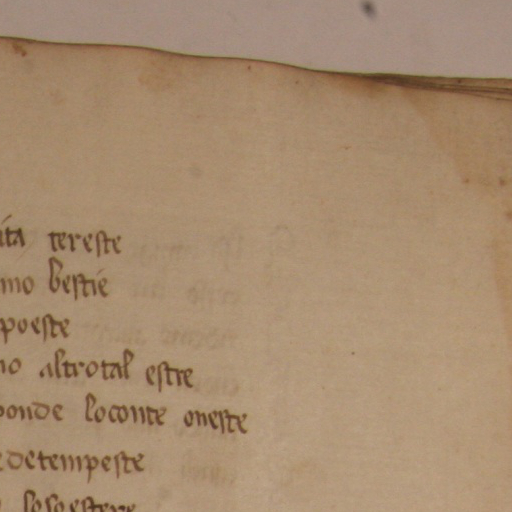 ita tereste
mo bestie
poeste
no altrotal estre
ponde loconte oneste
edetempeste